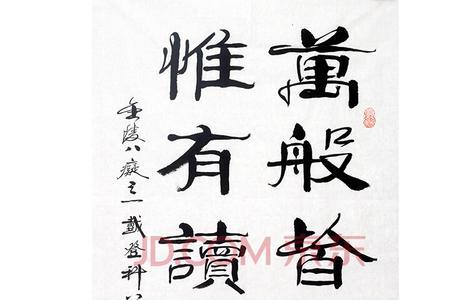 萬般皆
惟有讀
金陵八癡之一戴登科
JD.COM 京东